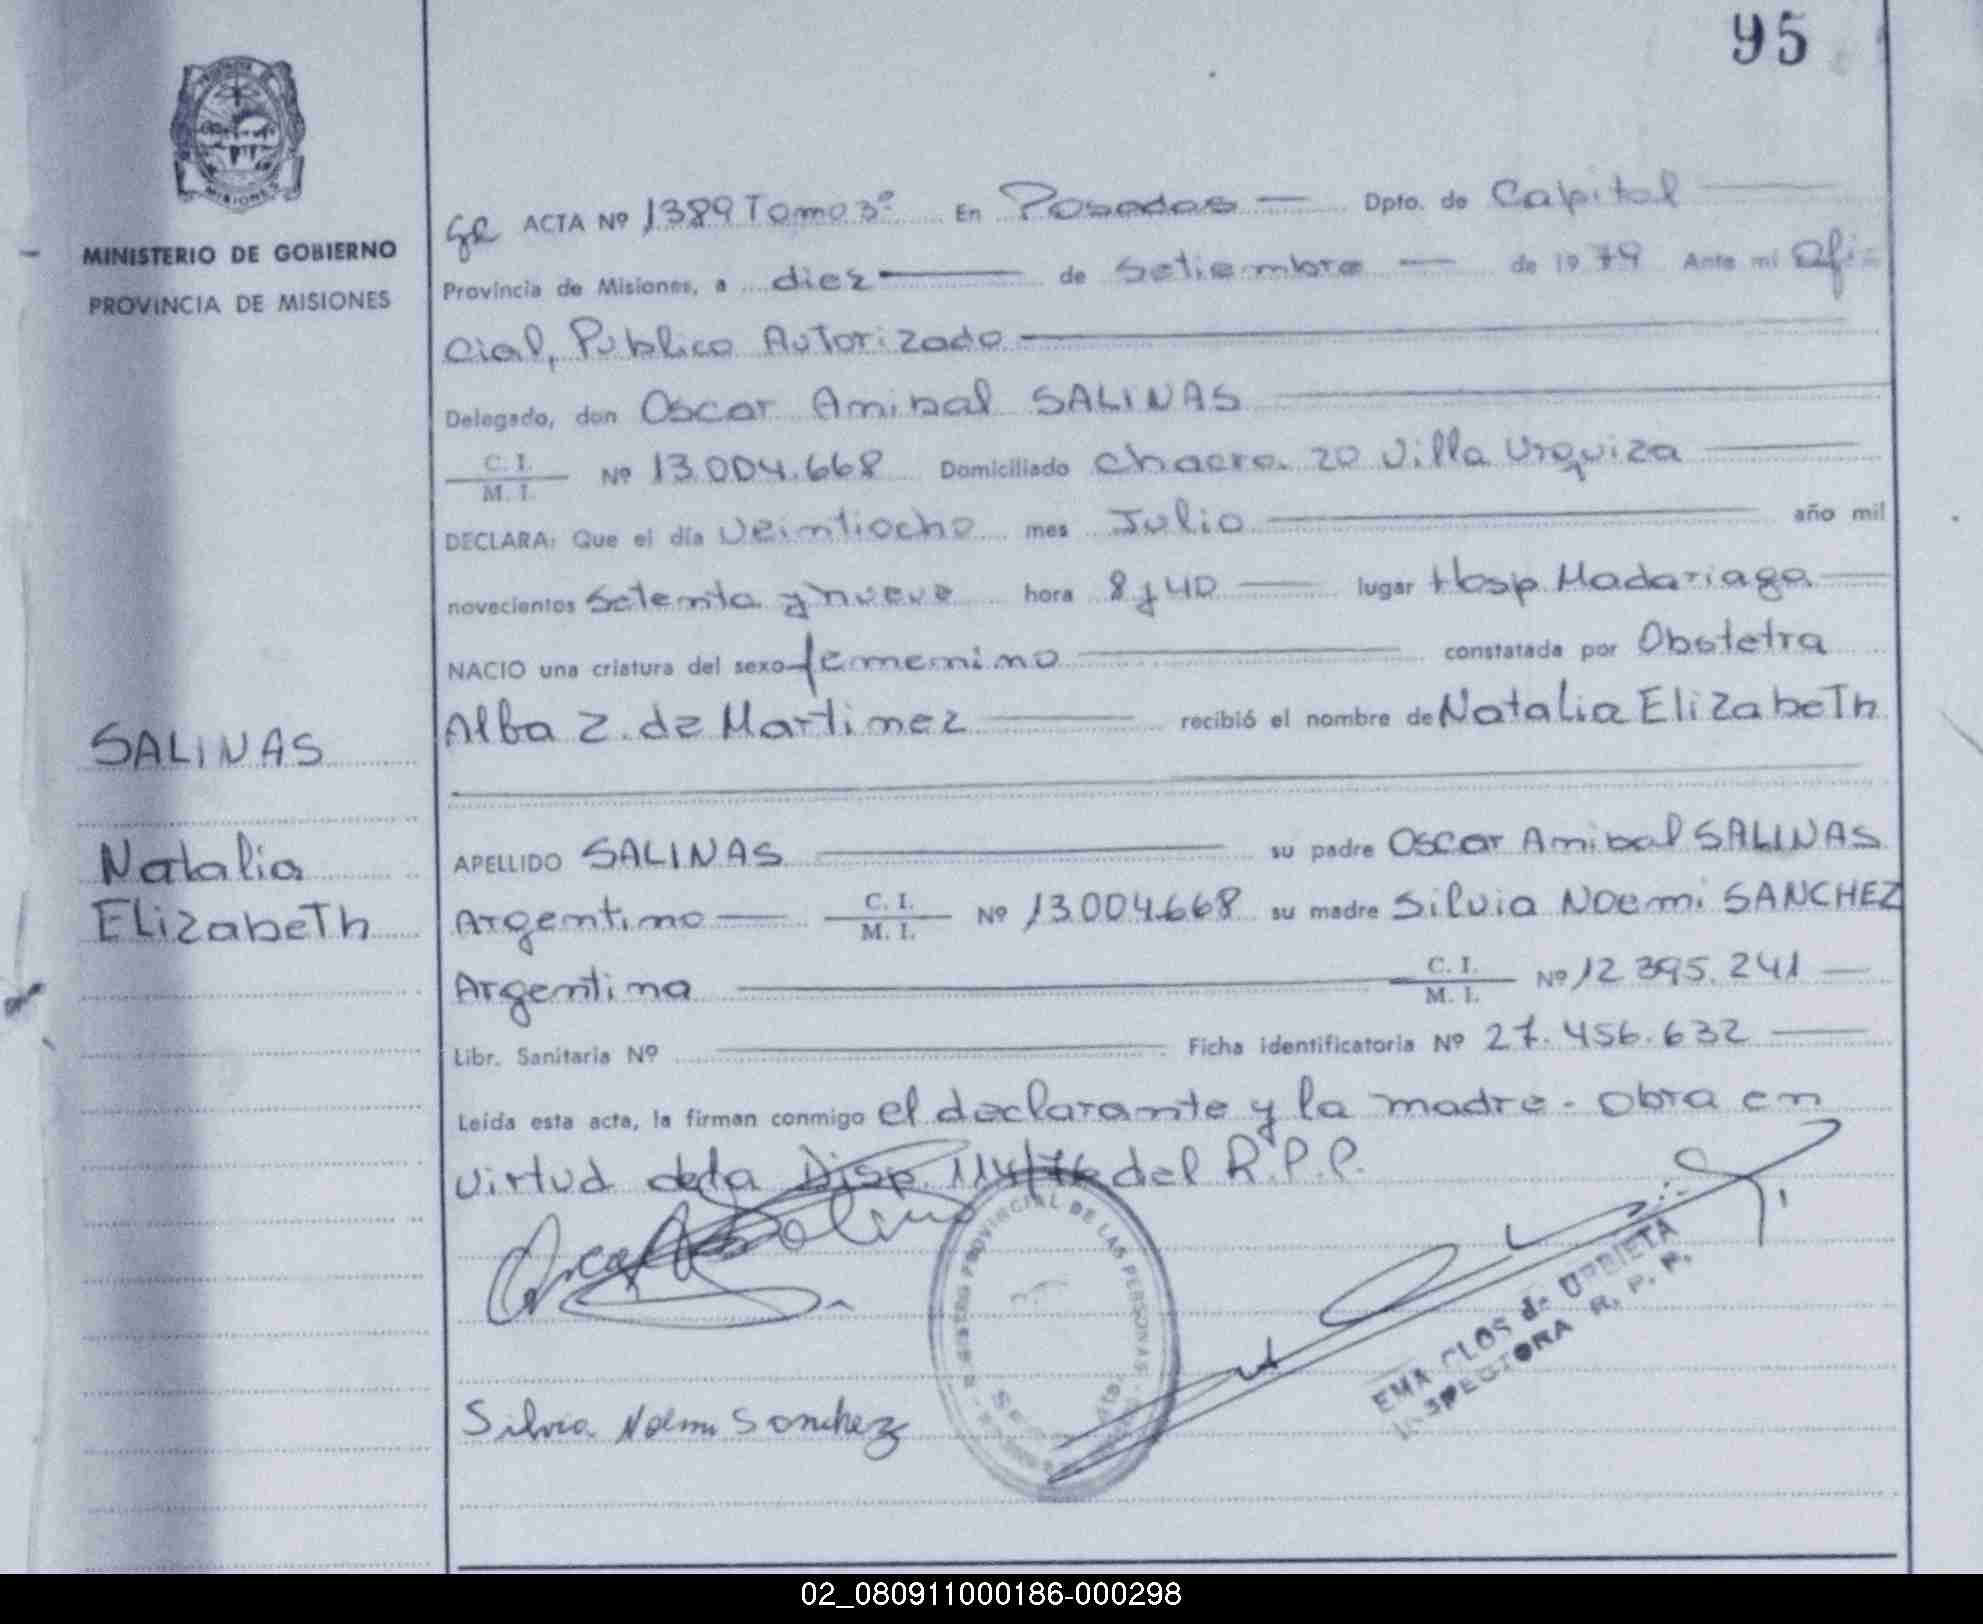 95
MISIONES
MINISTERIO DE GOBIERNO
PROVINCIA DE MISIONES
SALINAS
Natalia
ElizabeTh
ACTA Nº 1389 Tomo 3º En Posadas — Dpto. de Capital
Provincia de Misiones, a diez — de Setiembre — de 1979 Ante mi Ofi=
cial, Publico AuTorizado
Delegado, don Oscar Anibal SALINAS
C. I. / M. I. Nº 13.004.668 Domiciliado Chacra 20 Villa Urquiza
DECLARA: Que el día Veintiocho mes Julio año mil
novecientos Setenta y nueve hora 8 y 40 lugar Hosp Madariaga
NACIO una criatura del sexo femenino constatada por Obstetra
Alba Z. de Martinez recibió el nombre de Natalia ElizabeTh
APELLIDO SALINAS su padre Oscar Anibal SALINAS
Argentino C. I. / M. I. Nº 13.004.668 su madre Silvia Noemi SANCHEZ
Argentina C. I. / M. I. Nº 12.395.241
Libr. Sanitaria Nº Ficha identificatoria Nº 27.456.632
Leída esta acta, la firman conmigo el declarante y la madre - obra en
virtud de la Disp. 114/76 del R.P.P.
REGISTRO PROVINCIAL DE LAS PERSONAS
Silvia Noemi Sanchez
EMA CLOS de URBIETA
INSPECTORA R. P. P.
02_080911000186-000298